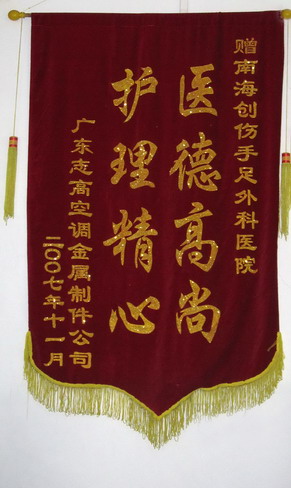 赠南海创伤手足外科医院
医德高尚
护理精心
广东志高空调金属制件公司
二〇〇七年十一月